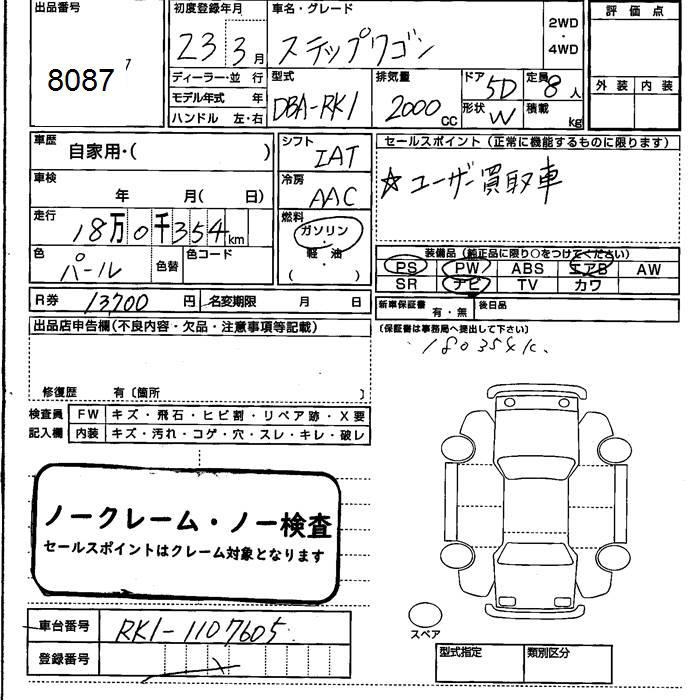 出品番号
8087
7
初度登録年月
23 3月
車名・グレード
ステップワゴン
2WD
・
4WD
評価点
外装 内装
ディーラー・並行
モデル年式 年
ハンドル 左・右
型式
DBA-RK1
排気量
2000cc
ドア 5D
形状 W
定員 8人
積載 kg
車歴
自家用・( )
車検
年 月( 日)
走行
18万0千354km
色
パール
色替
色コード
シフト
IAT
冷房
AAC
燃料
ガソリン・
軽油
( ・ )
セールスポイント(正常に機能するものに限ります)
☆ユーザー買取車
装備品(純正品に限り○をつけてください)
PS PW ABS エアB AW
SR ナビ TV カワ
新車保証書 有・無
後日品
(保証書は事務局へ提出して下さい)
180354k.
R券 13,700円
名変期限 月 日
出品店申告欄(不良内容・欠品・注意事項等記載)
修復歴 有〔箇所 〕
検査員
記入欄
FW キズ・飛石・ヒビ割・リペア跡・X要
内装 キズ・汚れ・コゲ・穴・スレ・キレ・破レ
ノークレーム・ノー検査
セールスポイントはクレーム対象となります
車台番号 RK1-1107605
登録番号
スペア
型式指定
類別区分